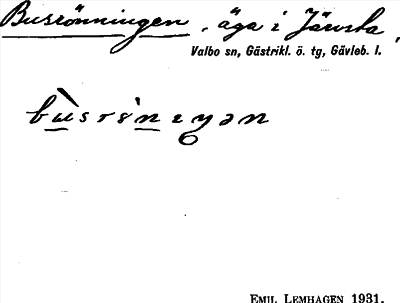 Busrönningen, äga i Järvsta,
Valbo sn, Gästrikl. ö. tg, Gävleb. l.
EMIL LEMHAGEN 1931.